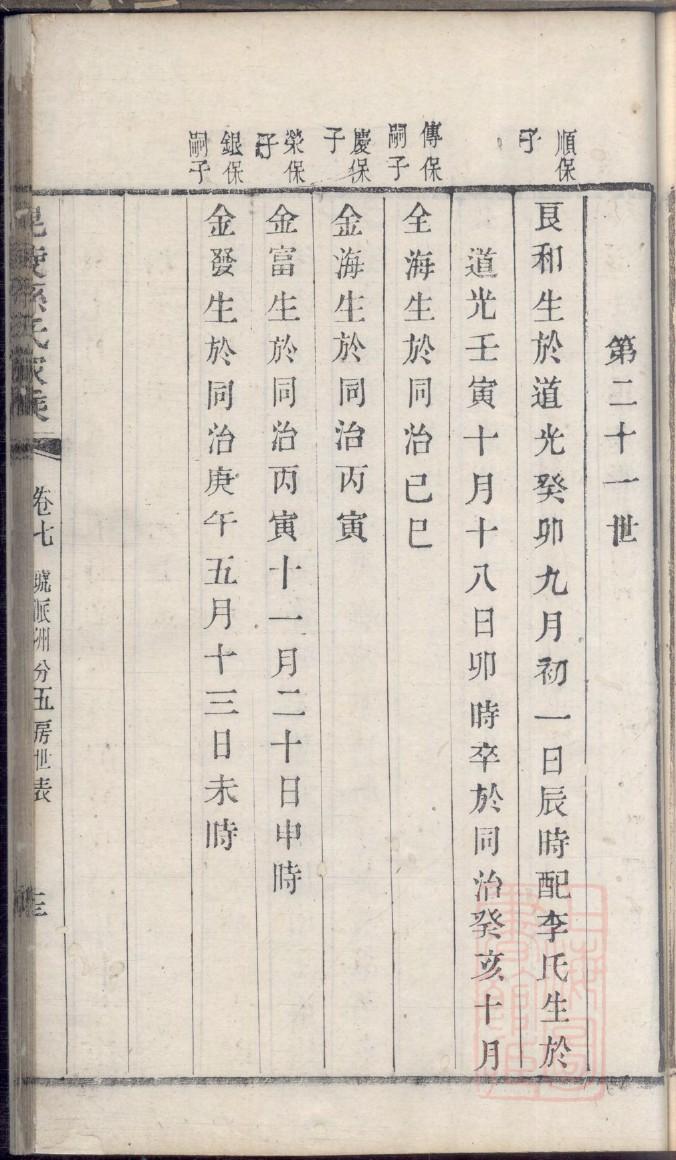 第二十一世
順保
子
良和生於道光癸卯九月初一日辰時配李氏生於
道光壬寅十月十八日卯時卒於同治癸亥十月
傳保
嗣子
全海生於同治己巳
慶保
子
金海生於同治丙寅
榮保
子
金富生於同治丙寅十一月二十日申時
銀保
嗣子
金發生於同治庚午五月十三日未時
毘陵孫氏家乘
卷七
分五房世表